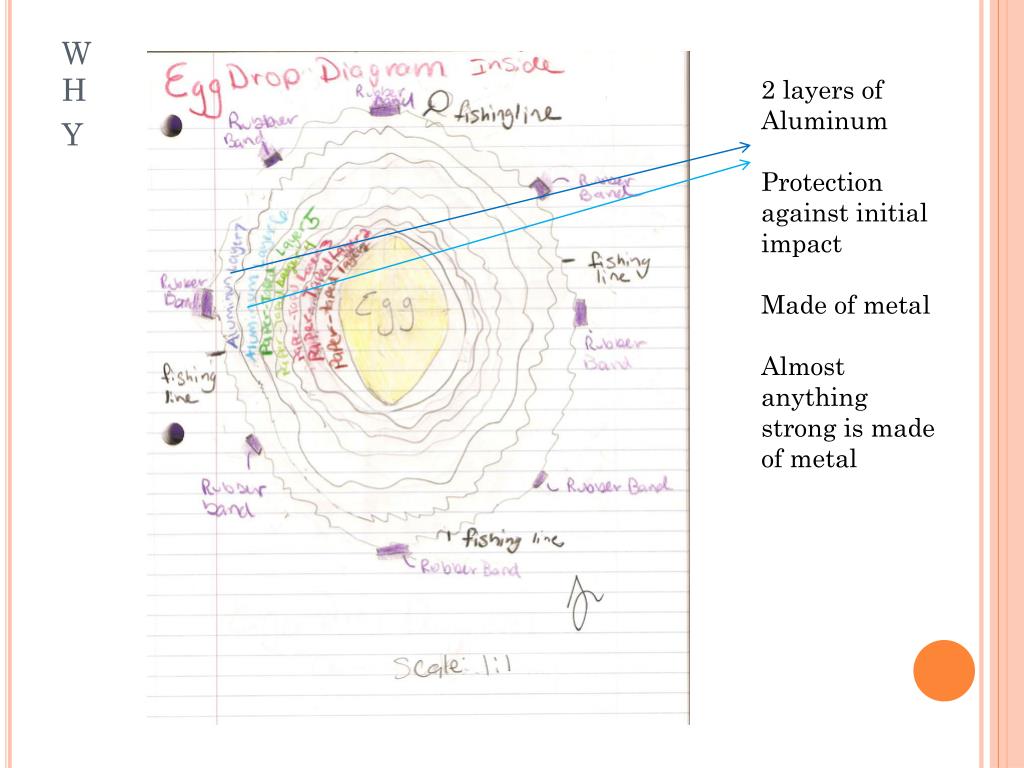 W
H
Y
Egg Drop Diagram Inside
Rubber
Band
fishing line
Rubber
Band
Rubber
Band
fishing
line
Rubber
Band
Aluminum Layer 7
Aluminum Layer 6
Paper-Taped Layer 5
Paper-Taped Layer 4
Paper-Taped Layer 3
Paper-taped Layer 2
Egg
Rubber
Band
fishing
line
Rubber
band
Rubber Band
fishing line
Rubber Band
Scale: 1:1
2 layers of
Aluminum
Protection
against initial
impact
Made of metal
Almost
anything
strong is made
of metal